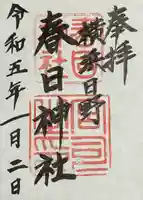 奉拝
横浜日野
春日神社
令和五年一月二日